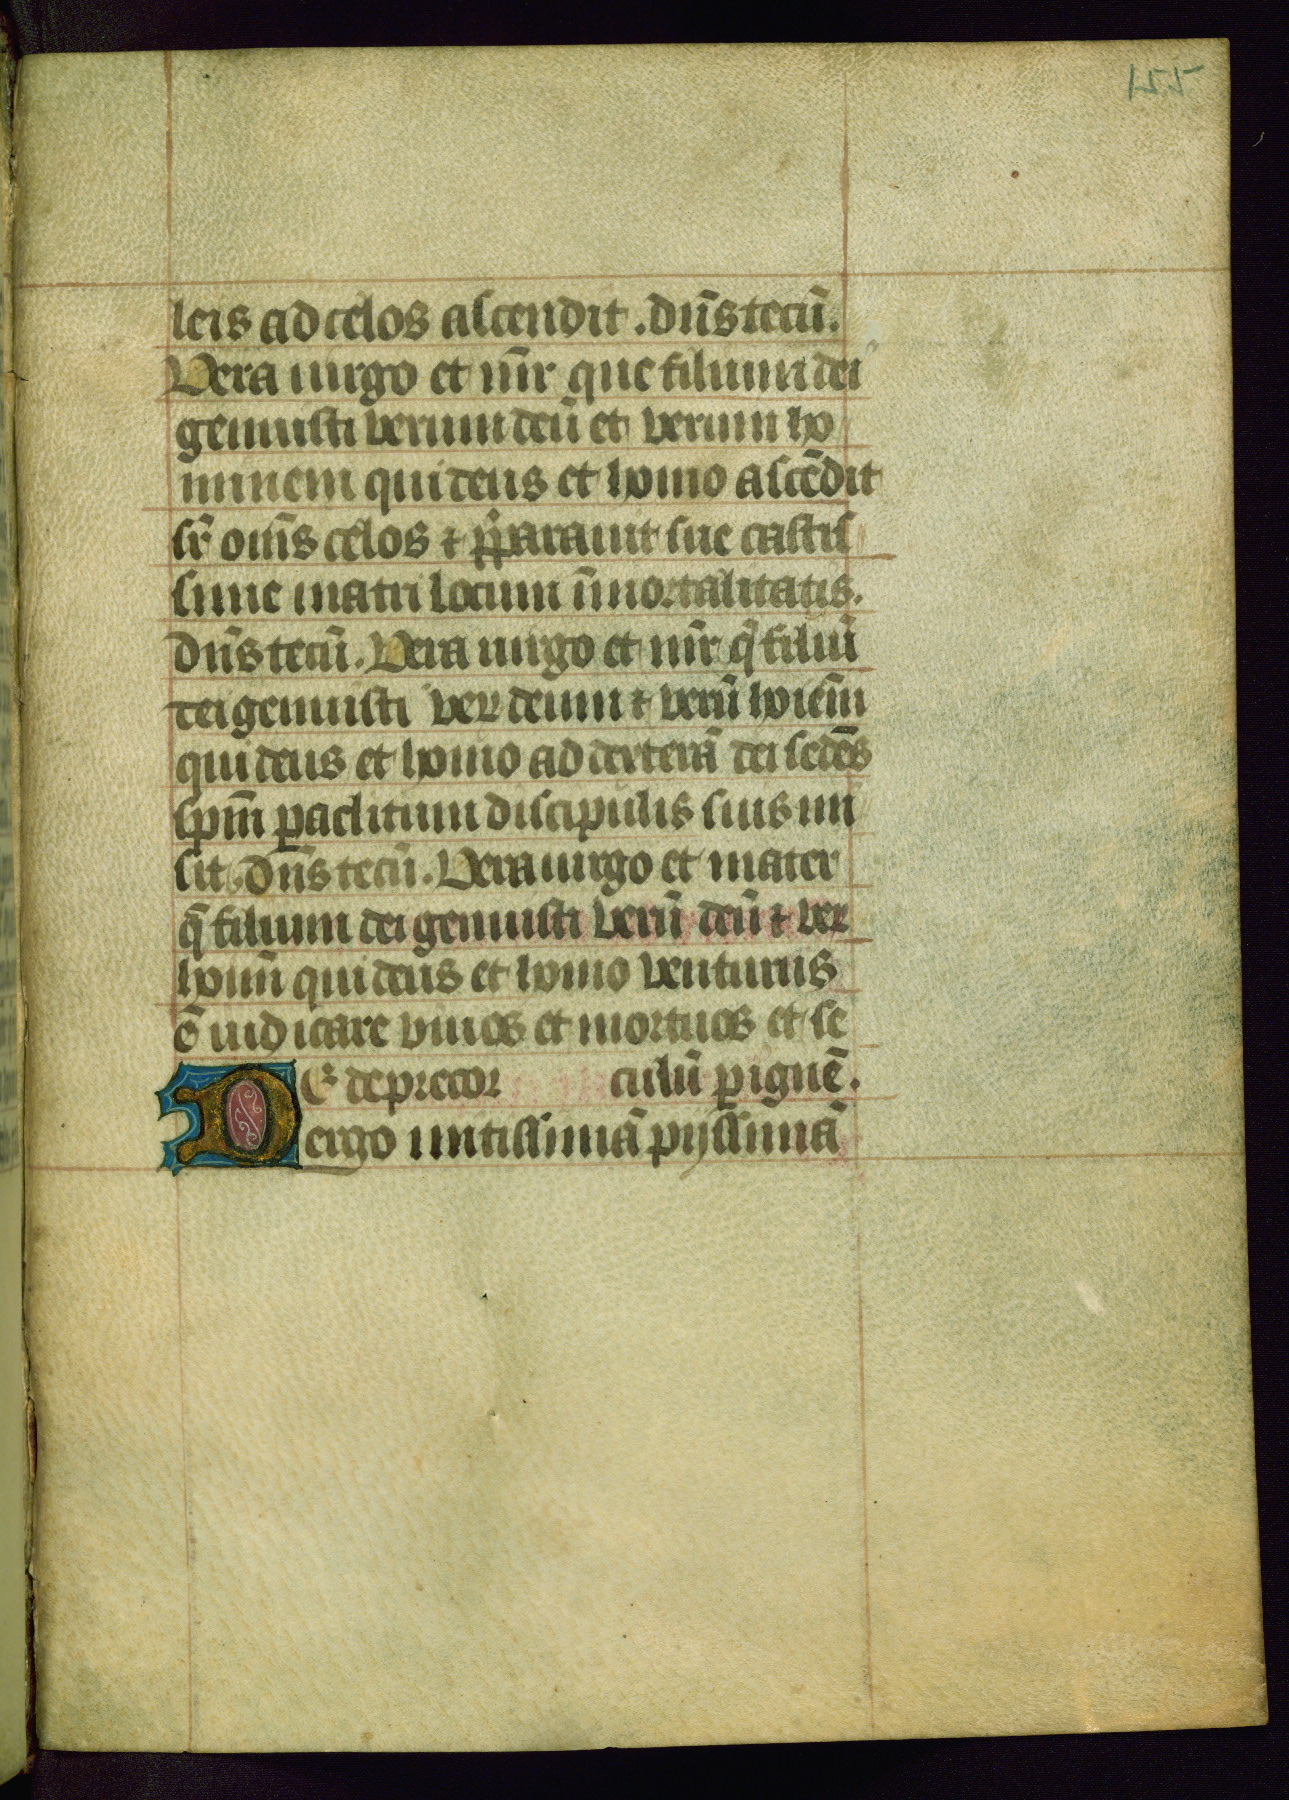 155
leis ad celos ascendit . dn̄s tecū.
Vera uirgo et mr̄ que filium dei
genuisti verum deū et verum ho
minem qui deus et homo ascēdit
sr̄ om̄s celos ⁊ p̄parauit sue castis
sime matri locum īmortalitatis.
Dn̄s tecū. Vera uirgo et mr̄ q̄ filiū
dei genuisti ver deum ⁊ verū hoiem̄
qui deus et homo ad dexterā dei sedēs
spm̄ paclitum discipulis suis mi
sit . Dn̄s tecū . Vera uirgo et mater
q̄ filium dei genuisti verū deū ⁊ ver
homī qui deus et homo venturus
ē iudicare viuos et mortuos et se
culū p ignē .
DE deprecor
ergo mitissimā pijssimā